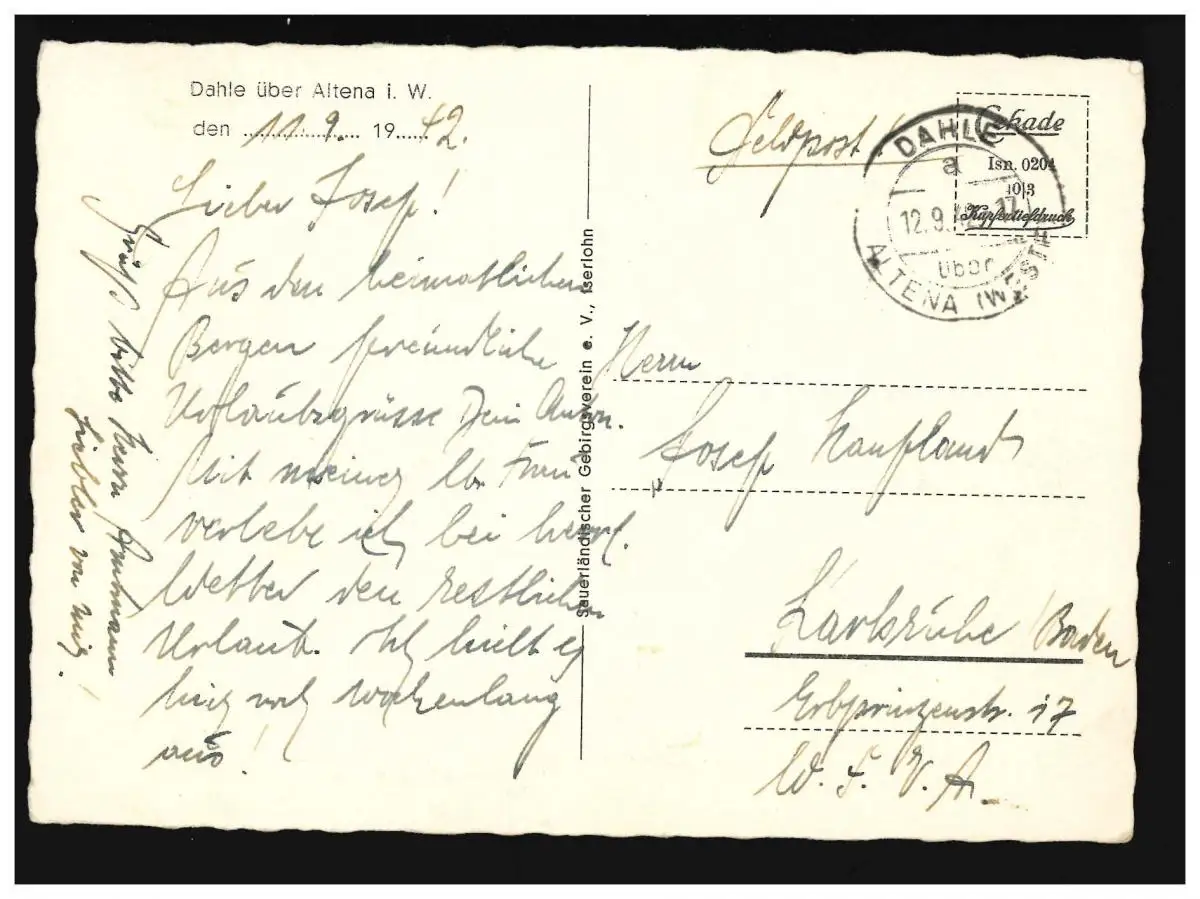 Dahle über Altena i. W.
den 11.9. 1942.
Lieber Josef!
Aus den heimatlichen
Bergen freundliche
Urlaubsgrüsse Dein Anton.
Mit meiner lb. Frau
verlebe ich bei herrl.
Wetter den restlichen
Urlaub. Ich hielt es
hier noch wochenlang
aus!
Grüß bitte Herrn
von mir!
Sauerländischer Gebirgsverein e. V., Iserlohn
Feldpost
DAHLE
a
12.9.42 17
über
ALTENA (WESTF)
Cekade
Isn. 0204
10/3
Kupfertiefdruck
Herrn
Josef Kaufland
Karlsruhe /Baden
Erbprinzenstr. 17
W. F. V. A.